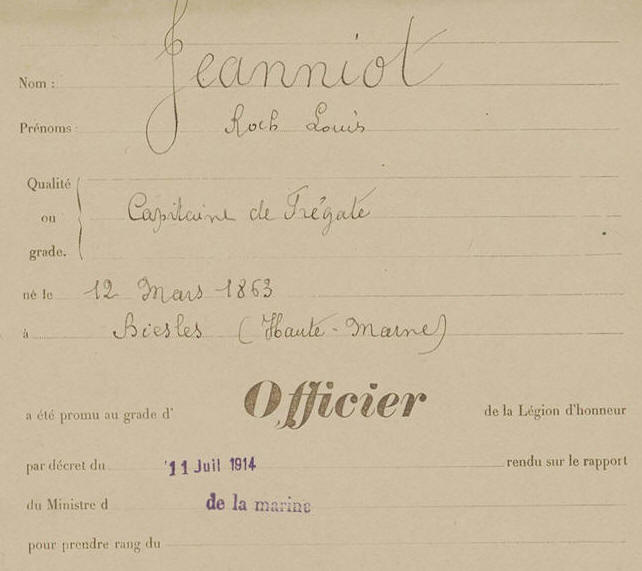 Nom : Jeanniot
Prénoms : Roch Louis
Qualité
ou Capitaine de Frégate
grade.
né le 12 Mars 1863
à Biesles (Haute-Marne)
a été promu au grade d' Officier de la Légion d'honneur
par décret du 11 Juil 1914 rendu sur le rapport
du Ministre d de la marine
pour prendre rang du